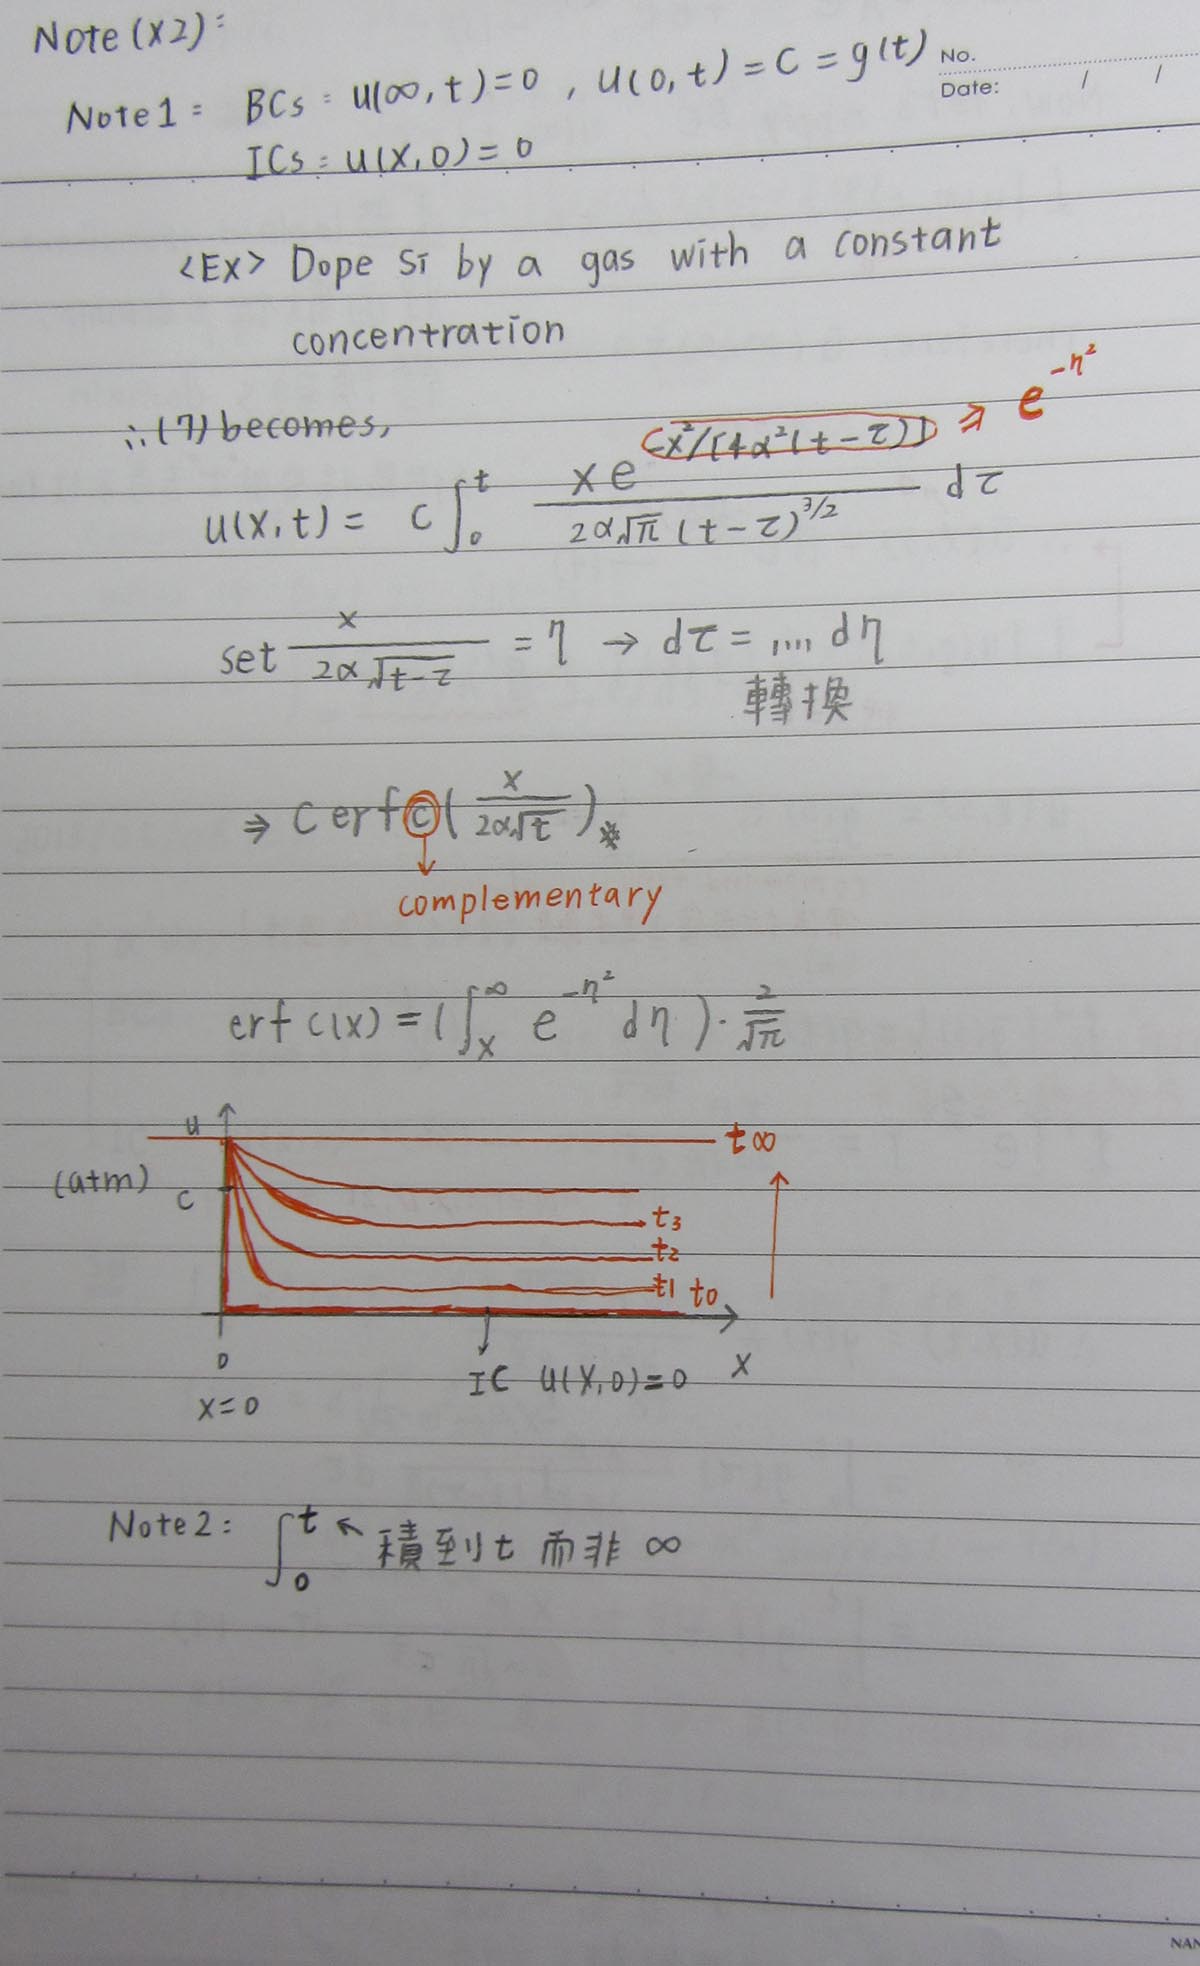 Note (x2):
No.
Date: / /
Note1: BCs: u(∞,t)=0 , u(0,t)=C=g(t)
ICs: u(x,0)=0
<Ex> Dope Si by a gas with a constant
concentration
∴(7) becomes,
u(x,t) = C∫₀ᵗ x e^(-x²/[4α²(t-τ)]) / 2α√π (t-τ)^(3/2) dτ ⇒ e^(-η²)
set x / 2α√(t-τ) = η → dτ = .... dη
轉換
⇒ C erfc( x / 2α√t )※
complementary
erfc(x) = (∫ₓ^∞ e^(-η²) dη)·2/√π
u
t∞
(atm)
C
t3
t2
t1 t0
0
IC u(x,0)=0
x
x=0
Note2: ∫₀ᵗ ↖ 積到t而非∞
NAN